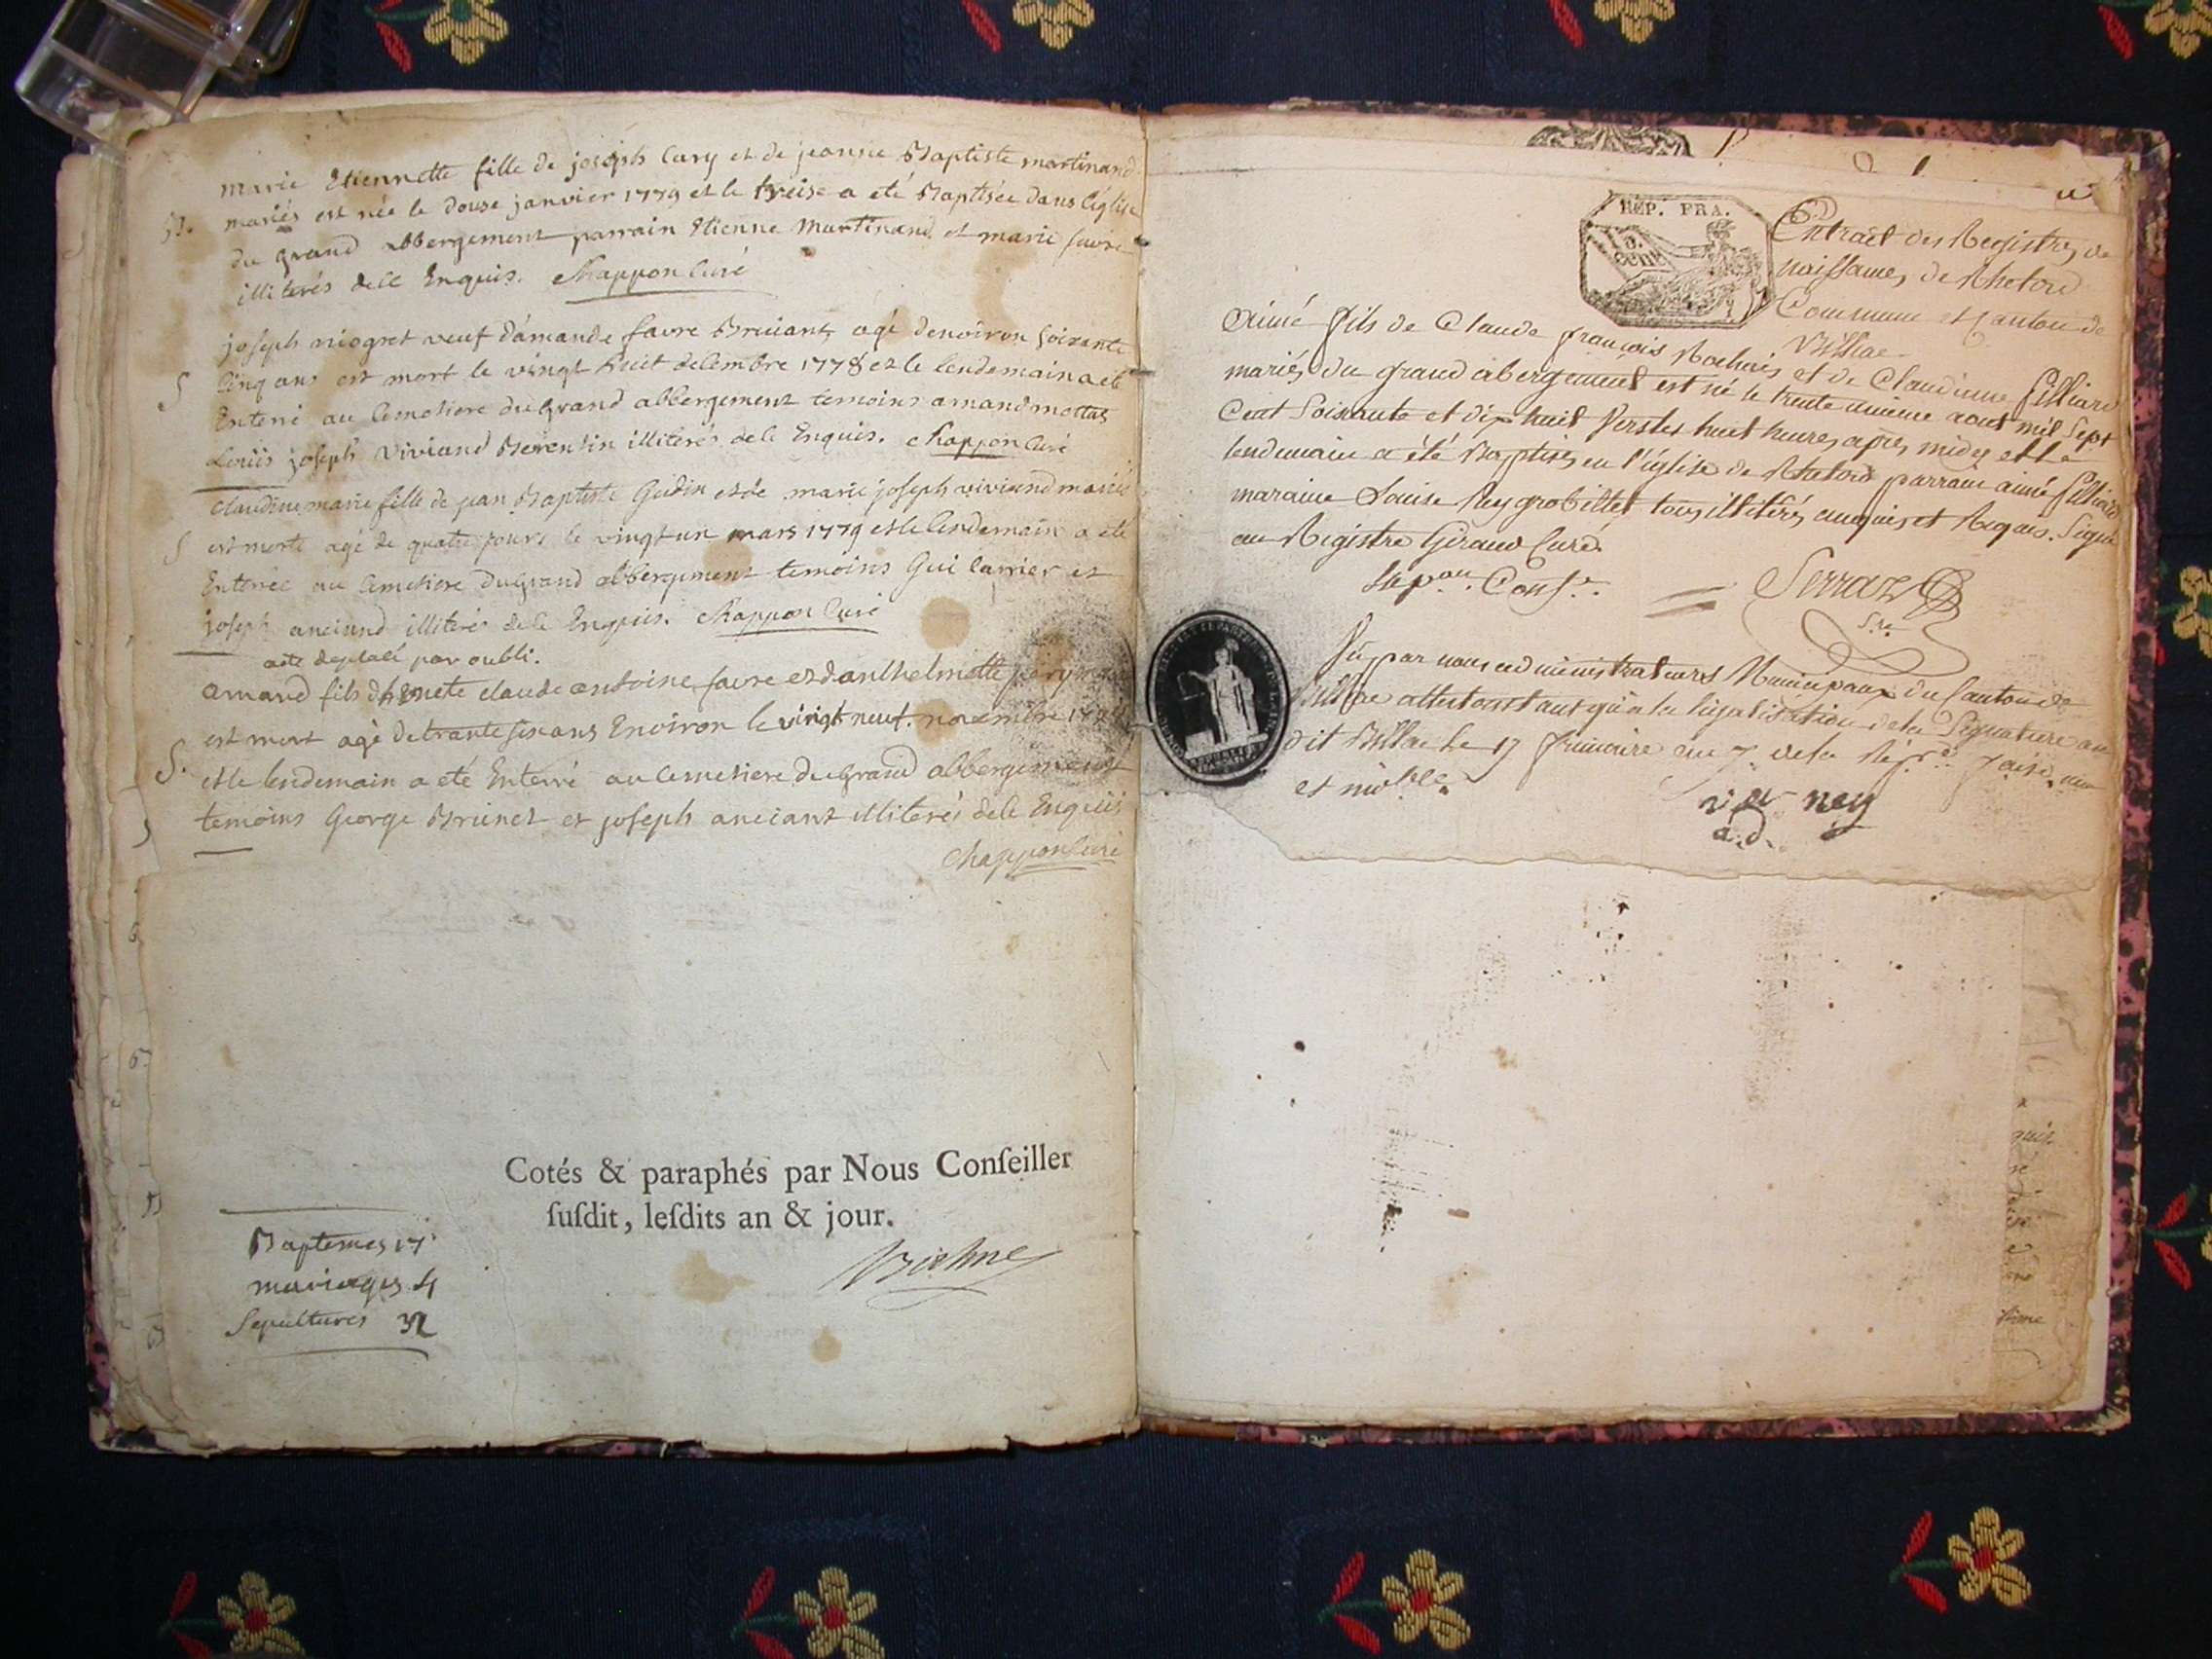 marie Etiennette fille de joseph Cary et de jeanne Baptiste martinand
B. mariés est née le douse janvier 1779 et le treise a eté Baptisée dans l'église
du grand abbergement parrain Etienne Martinand et marie favre
illiterés de ce Enquis. Chappon Curé
joseph niogret veuf d'amande favre Bruiant, agé denviron soixante
S cinq ans est mort le vingt huit decembre 1778 et le lendemain a eté
Enterré au cemetiere du grand abbergement temoins amand mottas
Louis joseph Viviand Berentin illiterés de ce Enquis. Chappon Curé
claudine marie fille de jean Baptiste Gudin et de marie joseph viviand mariés
S est morte agé de quatre jours le vingt un mars 1779 et le lendemain a eté
Enterrée au cemetiere du grand abbergement temoins Gui Carrier et
joseph anciand illiterés de ce Enquis. Chappon Curé
acte deplacé par oubli.
amand fils claude antoine favre et d'anthelmette
est mort agé de trante six ans Environ le vingt neuf novembre
S. et le lendemain a eté Enterré au cemetiere du grand abbergement
temoins George Brunet et joseph anciant illiterés de ce Enquis
Chappon Curé
Cotés & paraphés par Nous Conſeiller
ſuſdit, leſdits an & jour.
Baptemes 17
mariages 4
Sepultures 32
RÉP. FRA.
cent
Extrait des Registres de
naissances de Rhetord
Commune et Canton de
Brillac
Aimé fils de Claude françois Rochais et de Claudine filliard
mariés du grand abergement est né le trente unieme aout mil sept
Cent Soixante et dix huit Vers les huit heures après midy et le
lendemain a été Baptisé en l'église de Rhetord parrain aimé filliard
maraine Louise Rey grobillet tous illitérés enquis et Requis. Signé
au Registre Giraud Curé.
Serraz
S.re
Vu par nous administrateurs Municipaux du Canton de
attestons tant qu'a la légalisation de la Signature au
dit Brillac le 17 frimaire an 7. de la Rép.ce
et
ney
a.d.